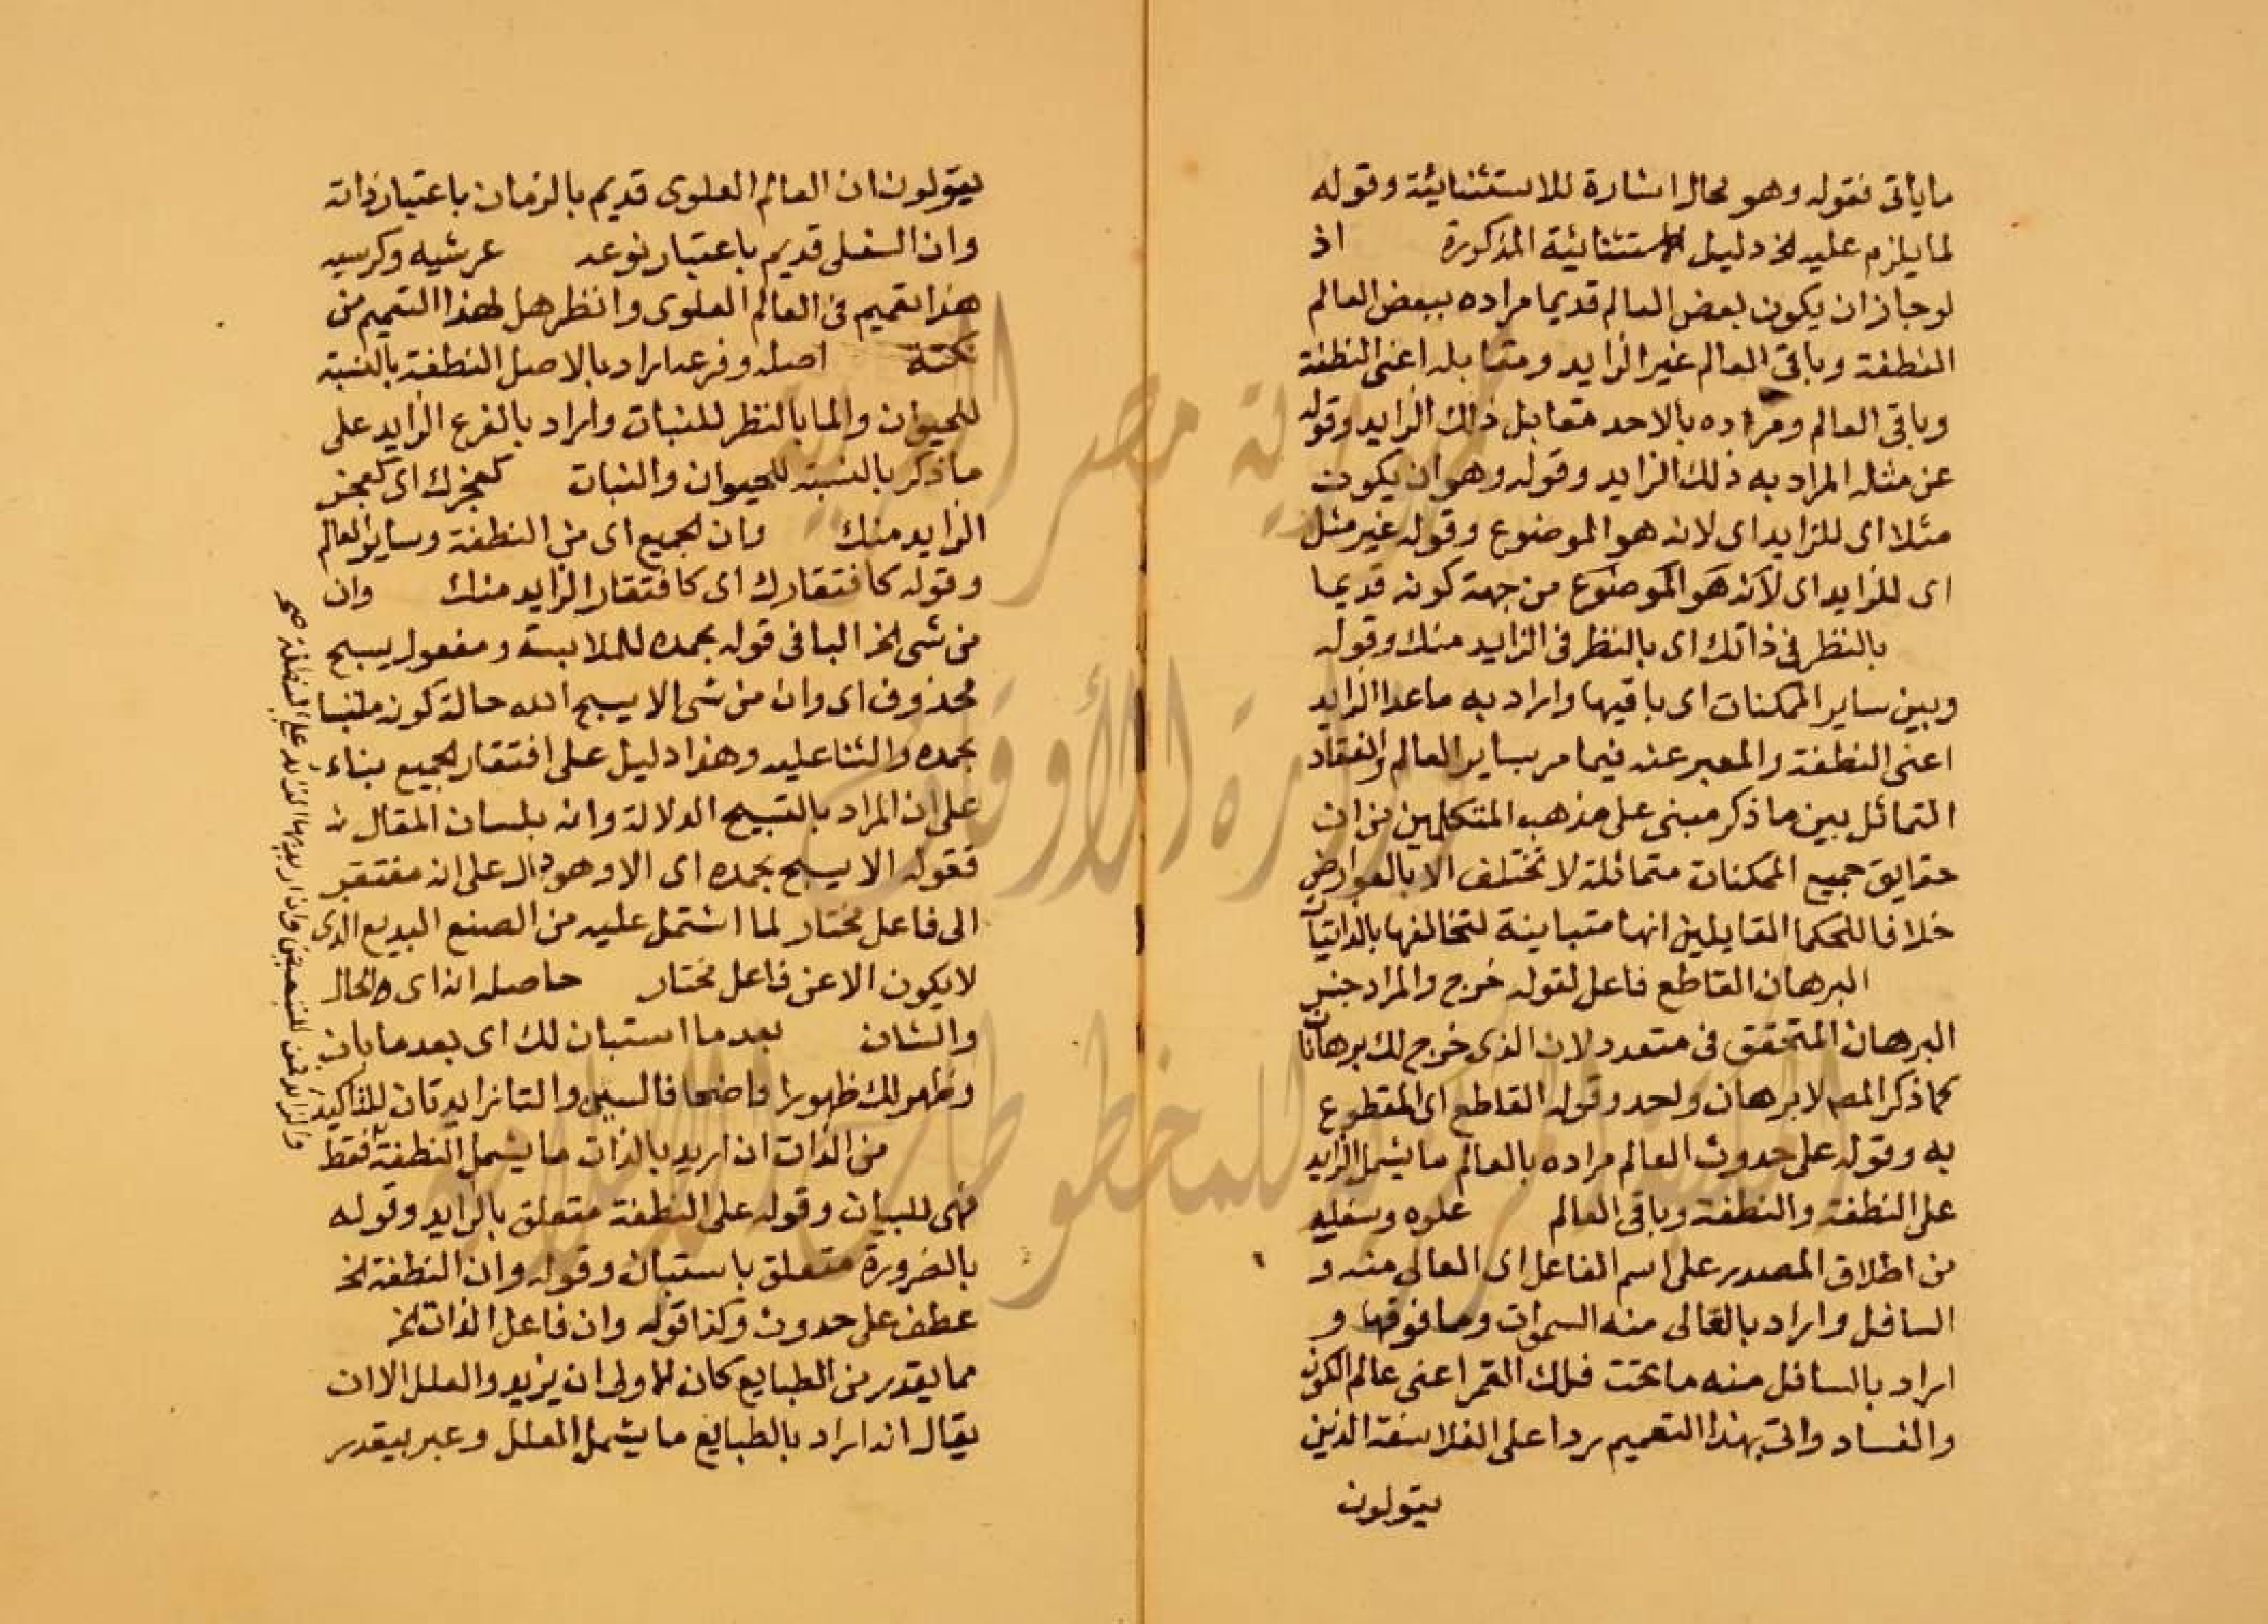 ماياتى فقوله وهو محال اشارة للاستثنائية وقوله
لما يلزم عليه الخ دليل الاستثنائية المذكورة اذ
لو جاز ان يكون بعض العالم قديما مراده ببعض العالم
النطفة وباقى العالم غير الزايد ومقابله اعنى النطفة
وباقى العالم ومراده بالاحد مقابل ذلك الزايد وقوله
عن مثله المراد به ذلك الزايد وقوله وهو ان يكون
مثلا اى للزايد اى لانه هو الموضوع وقوله غير مثل
اى للزايد اى لانه هو الموضوع من جهة كونه قديما
بالنظر فى ذاتك اى بالنظر فى الزايد منك وقوله
وبين ساير الممكنات اى باقيها واراد به ماعدا الزايد
اعنى النطفة والمعبر عنه فيما مر بساير العالم وانعقاد
التماثل بين ما ذكر مبنى على مذهب المتكلمين من ان
حقايق جميع الممكنات متماثلة لا تختلف الا بالعوارض
خلافا للحكما القايلين انها متباينة لتخالفها بالذاتيات
البرهان القاطع فاعل لقوله خرج والمراد جنس
البرهان المتحقق فى متعدد لان الذى خرج لك برهانان
كما ذكر المص لا برهان واحد وقوله القاطع اى المقطوع
به وقوله على حدوث العالم مراده بالعالم ما يشمل الزايد
على النطفة والنطفة وباقى العالم علوه وسفليه
من اطلاق المصدر على اسم الفاعل اى العالى منه و
السافل واراد بالعالى منه السموات وما فوقها و
اراد بالسافل منه ما تحت فلك القمر اعنى عالم الكون
والفساد واتى بهذا التعميم ردا على الفلاسفة الذين
يقولون
يقولون ان العالم العلوى قديم بالزمان باعتبار ذاته
وان السفلى قديم باعتبار نوعه عرشيه وكرسيه
هذا تعميم فى العالم العلوى وانظر هل لهذا التعميم من
نكتة اصله وفرعه اراد بالاصل النطفة بالنسبة
للحيوان والما بالنظر للنبات واراد بالفرع الزايد على
ما ذكر بالنسبة للحيوان والنبات كعجزك اى كعجز
الزايد منك وان الجميع اى من النطفة وساير العالم
وقوله كافتقارك اى كافتقار الزايد منك وان
من شى الخ البا فى قوله بحمده للملابسة ومفعول يسبح
محذوف اى وان من شى الا يسبح الله حالة كونه ملتبسا
بحمده والثنا عليه وهذا دليل على افتقار الجميع بناء
على ان المراد بالتسبيح الدلالة وانه بلسان المقال
فقوله الا يسبح بحمده اى الا وهو دال على انه مفتقر
الى فاعل مختار لما اشتمل عليه من الصنع البديع الذى
لا يكون الا عن فاعل مختار حاصله انه اى الحال
والشان بعد ما استبان لك اى بعد ما بان
وظهر لك ظهورا واضحا فالسين والتا زايدتان للتاكيد
من الذات ان اريد بالذات ما يشمل النطفة فقط
فهى للبيان وقوله على النطفة متعلق بالزايد وقوله
بالضرورة متعلق باستبان وقوله وان النطفة الخ
عطف على حدوث وكذا قوله وان فاعل الذات الخ
مما يقدر من الطبايع كان الاولى ان يزيد والعلل الا ان
يقال انه اراد بالطبايع ما يشمل العلل وعبر بيقدر
والزايد فمن للتبعيض وان اريد بها الزايد على النطفة صح